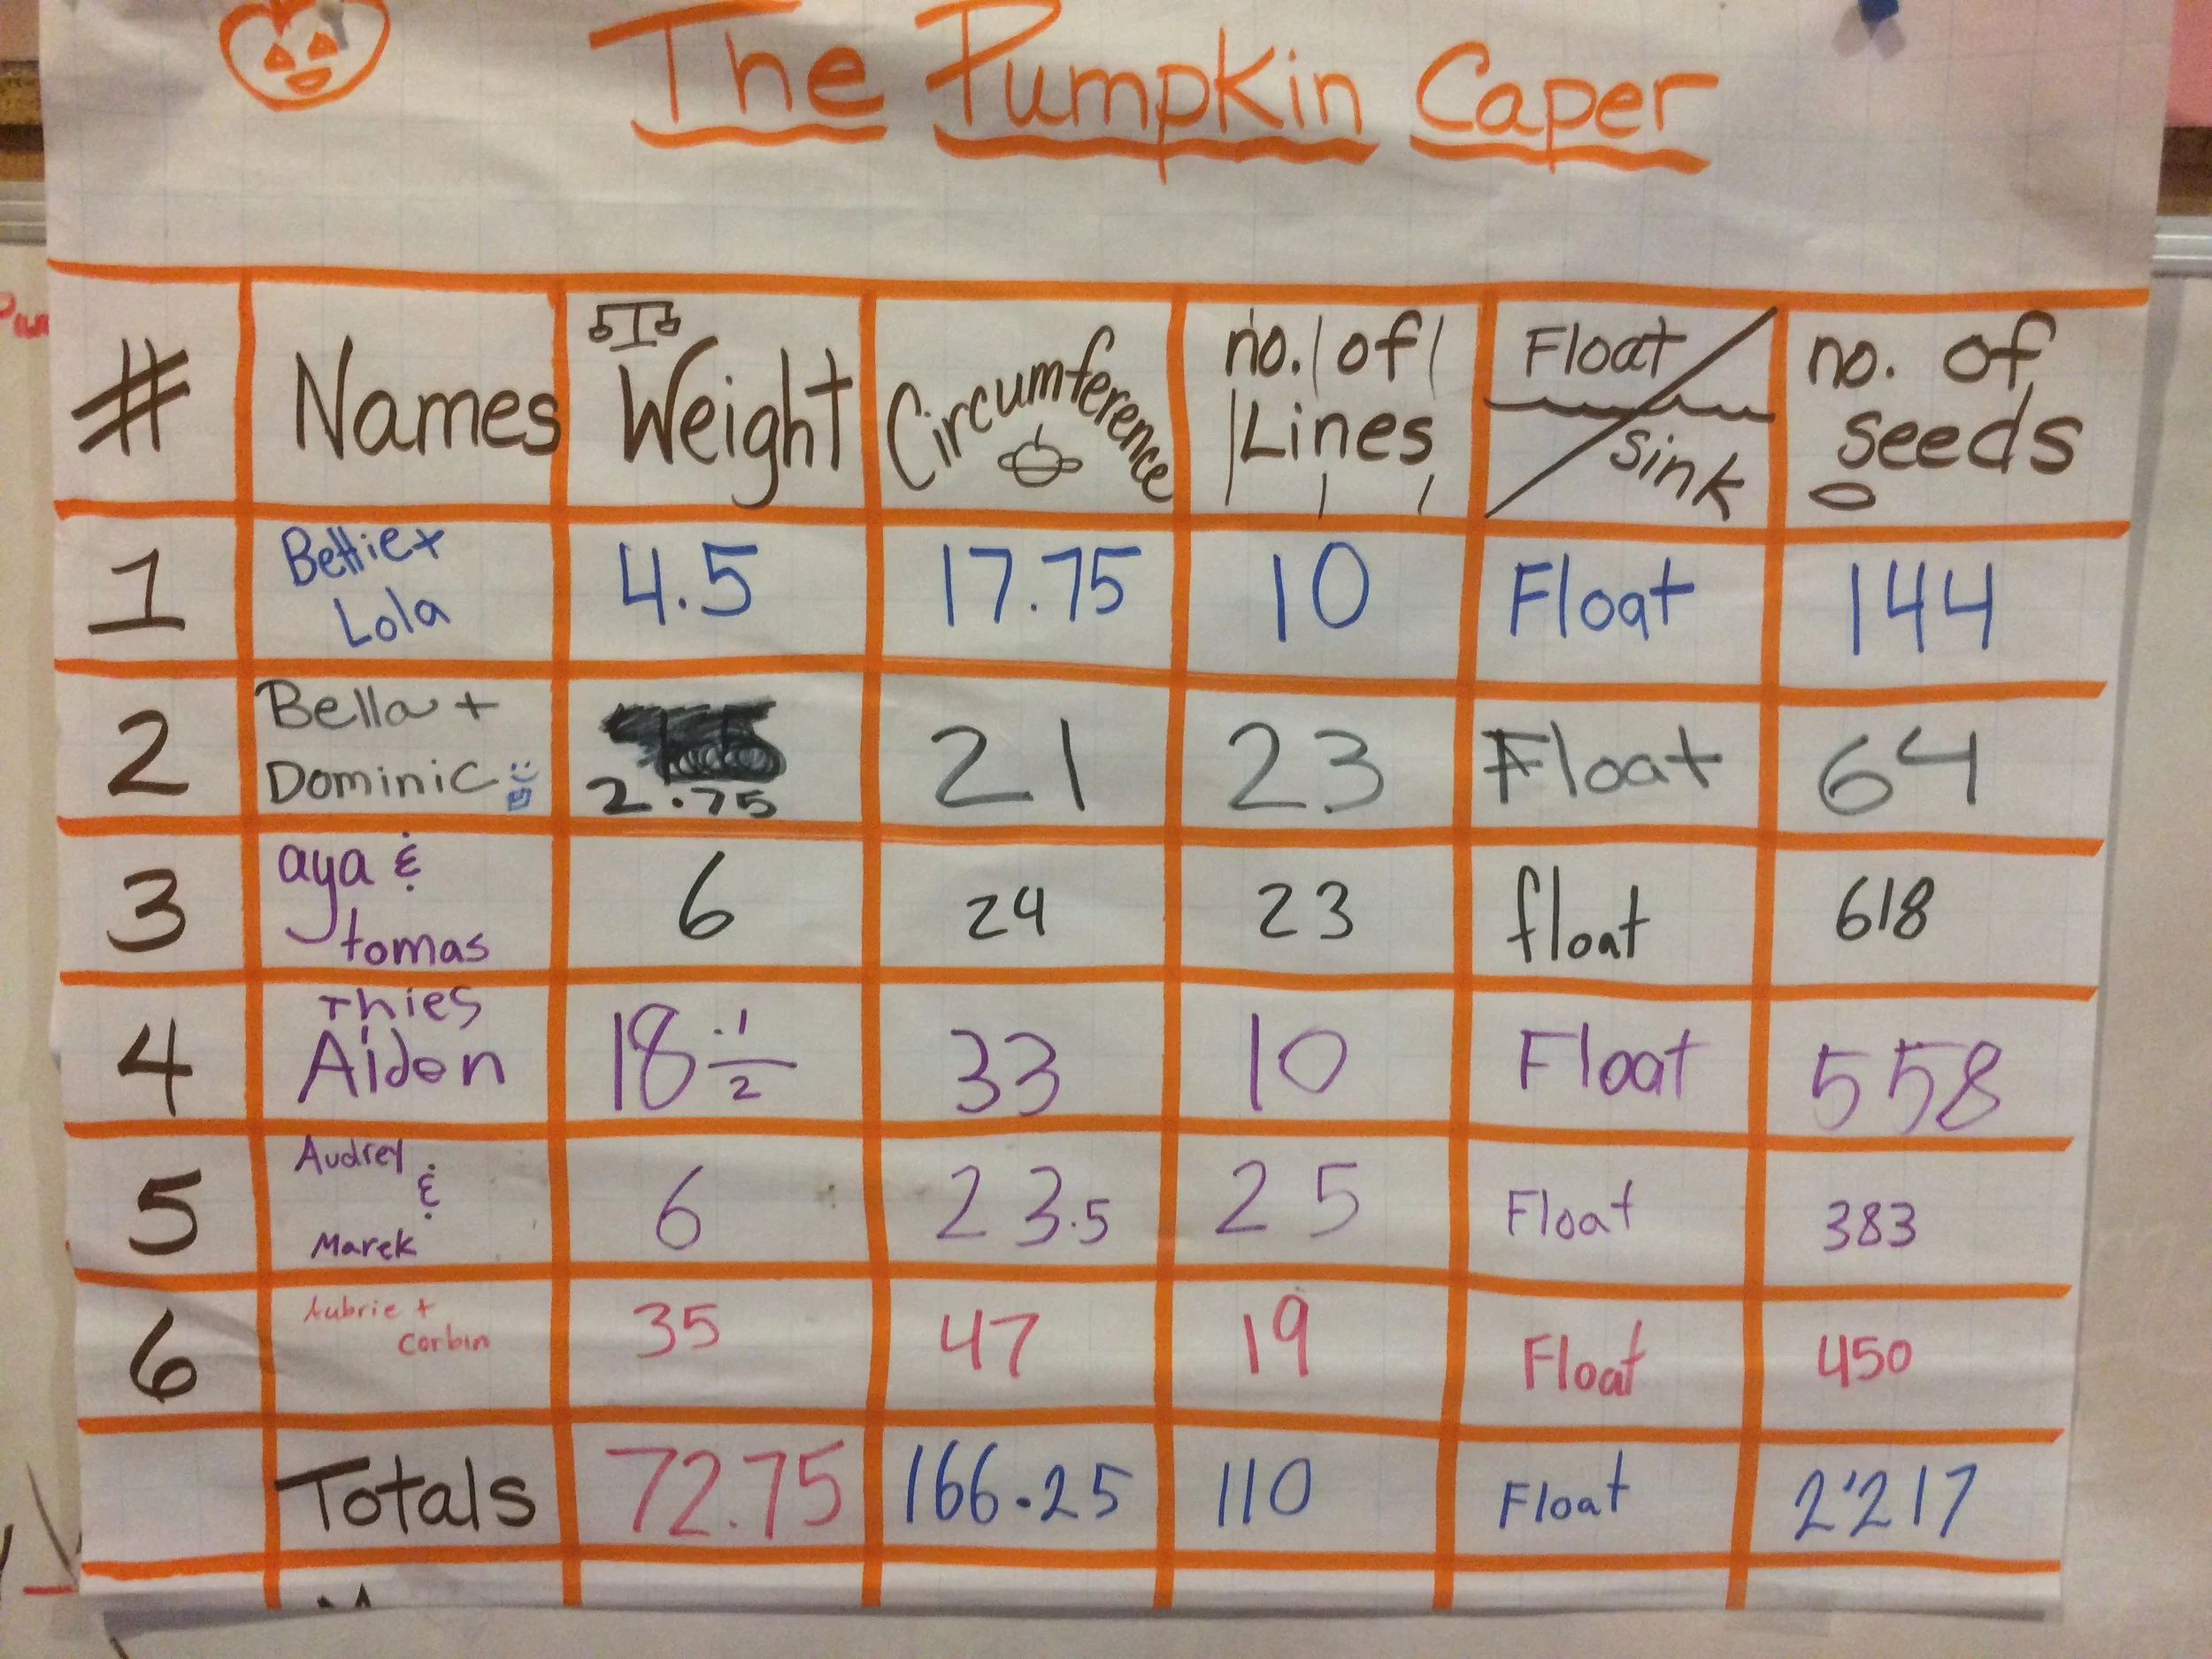 The Pumpkin Caper
# Names Weight Circumference no. of Lines Float / Sink no. of seeds
1 Bettie + Lola 4.5 17.75 10 Float 144
2 Bella + Dominic 2.75 21 23 Float 64
3 aya & tomas 6 24 23 float 618
4 Thies Aidan 18 1/2 33 10 Float 558
5 Audrey & Marek 6 23.5 25 Float 383
6 Aubrie + Corbin 35 47 19 Float 450
Totals 72.75 166.25 110 Float 2'217